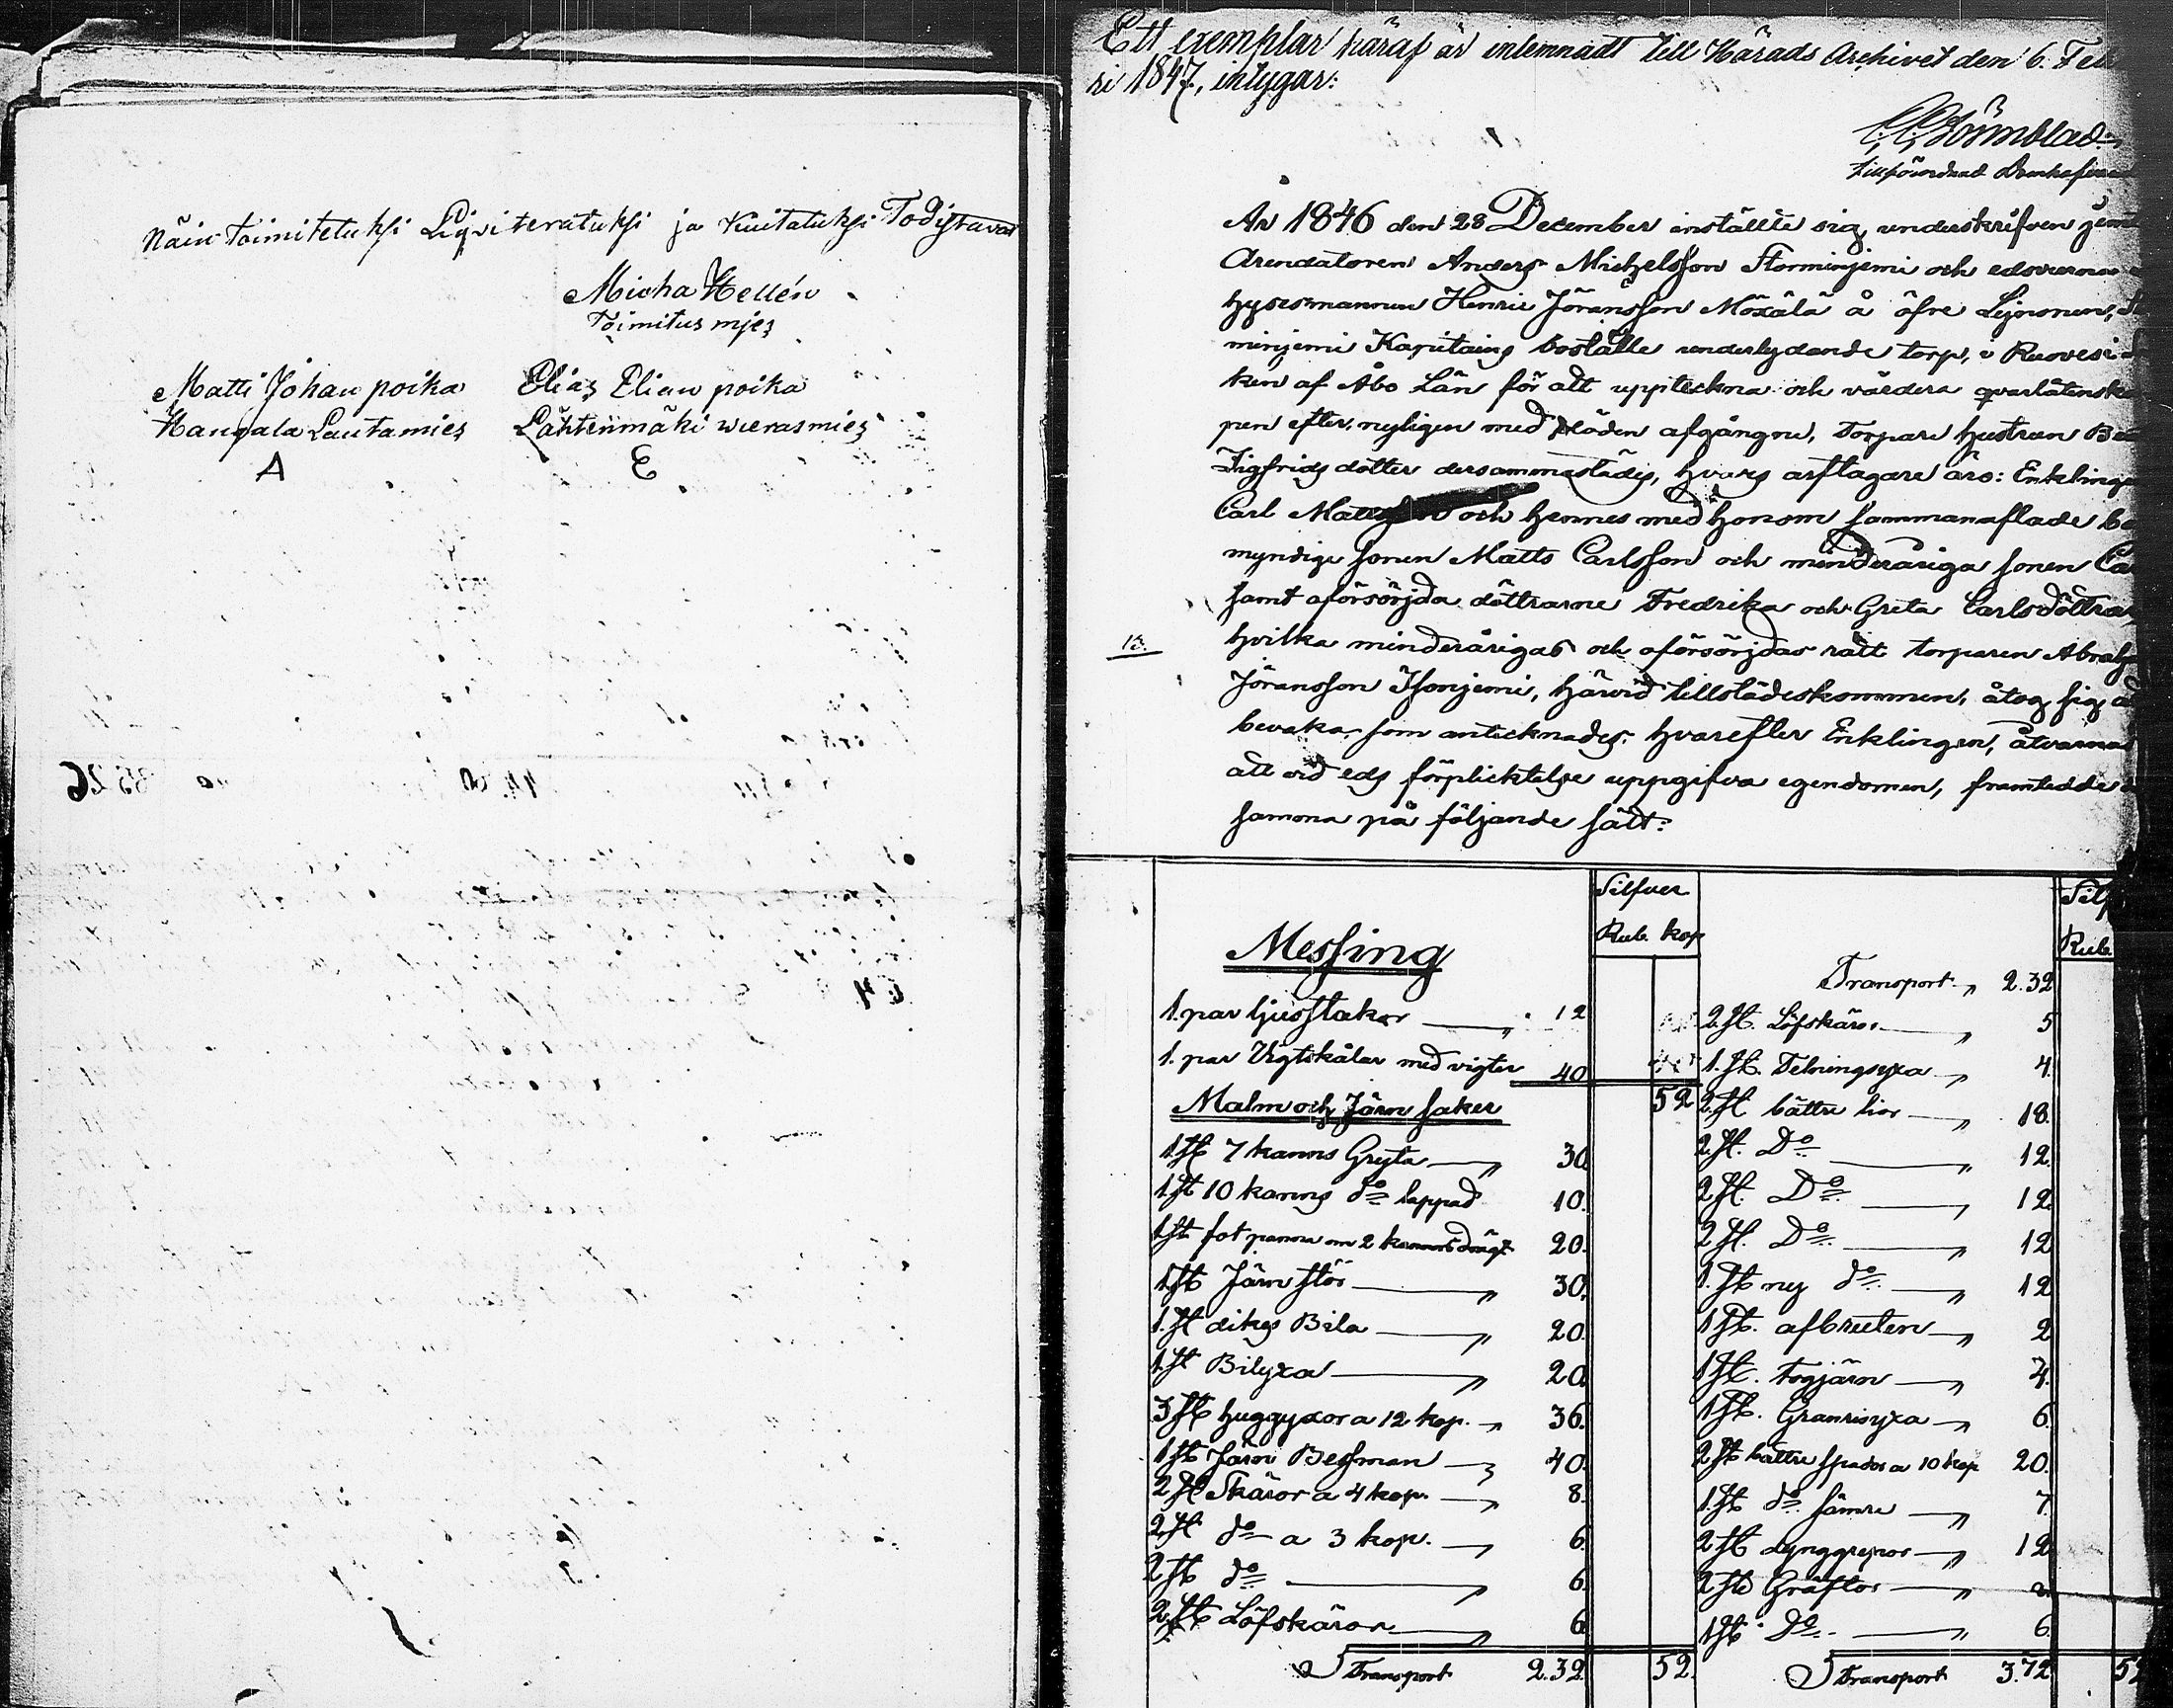 Näin toimitetuksi Liqviteratuksi ja Kuitatuksi Todistavat
Micha Hellén
Toimitus mies
Matti Johan poika Elias Elian poika
Kangala Lautamies Lähteinmäki wierasmies
A E
Ett exemplar häraf är inlemnadt till Härads Archivet den 6. Feb
ri 1847, intygar:
År 1846 den 28 December inställte sig underskrifven
Arendatoren Anders Michelsson Storminjemi och edsvurna
Henric Jöransson å öfre
minjemi Kapitains boställe underlydande torp, i Ruovesi
ken af Åbo Län för att uppteckna och värdera qvarlåtenska
pen efter, nyligen med döden afgångne, Torpare hustrun
Sigfrids dotter dersammastädes, hvars arftagare äro: Enklinge
Carl och hennes med honom sammanaflade
myndige sonen Matts Carlsson och minderåriga sonen
samt oförsörjda döttrarne Fredrika och Greta Carlsdöttrar
13.
hvilka minderårigas och oförsörjdas rätt torparen
Jöransson Isonjemi, härvid tillstädeskommen, åtog sig
bevaka som antecknades: hvarefter Enklingen,
att vid eds förpliktelse uppgifva egendomen, framtedde
samma på följande sätt:
Silfver
Rub. kop
Messing
1. par ljusstakar " 12
1. par Vigtskålar med vigter 40
52
Malm och Järn saker
1 St 7 kanns Gryta " 30
1 St 10 kanns do lappad 10.
1 St fot panna om 2 kanns 20.
1 St Järn stör " 30.
1. St dikes Bila " 20.
1. St Bilyxa " 20.
3 St huggyxor a 12 kop. " 36.
1 St Järn Bessman " 40.
2 St Skäror a 4 kop. " 8.
2 St do a 3 kop. " 6.
2 St do " 6.
2 St Löfskäror " 6
Transport 2.32. 52.
Silf
Rub.
Transport " 2.32
2. St. Löfskäror " 5
1. St. Telningsyxa " 4.
2. St bättre lior " 18.
2. St. Do " 12.
2 St. Do " 12.
2 St. Do " 12
1. St ny do " 12
1 St. afbruten " 2
1 St. togjärn " 4.
1 St. Granrisyxa " 6.
2 St bättre spador a 10 kop 20.
1. St do sämre " 7.
2 St dynggrepor " 12
2 St Gräftor "
1 St Do " 6.
Transport 3.72 52